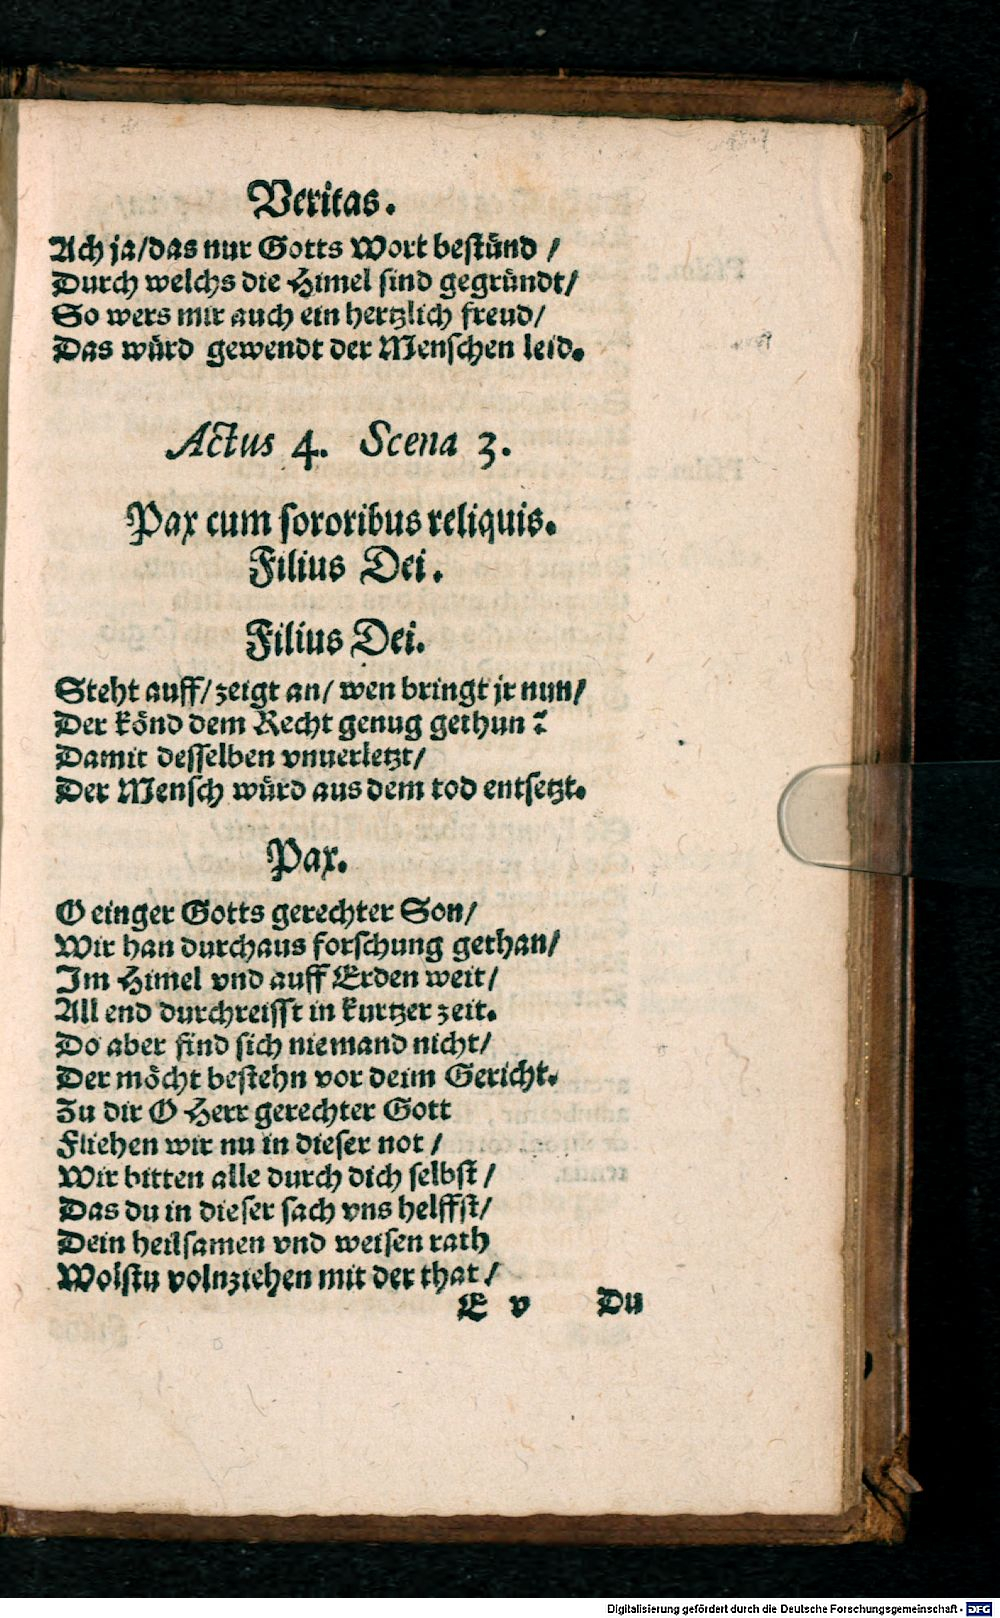 Veritas.
Ach ja/das nur Gotts Wort bestünd /
Durch welchs die Himel sind gegründt/
So wers mir auch ein hertzlich freud/
Das würd gewendt der Menschen leid.
Actus 4. Scena 3.
Pax cum sororibus reliquis.
Filius Dei.
Filius Dei.
Steht auff/ zeigt an/ wen bringt jr nun/
Der könd dem Recht genug gethun?
Damit desselben vnuerletzt/
Der Mensch würd aus dem tod entsetzt.
Pax.
O einger Gotts gerechter Son/
Wir han durchaus forschung gethan/
Im Himel vnd auff Erden weit/
All end durchreisst in kurtzer zeit.
Do aber find sich niemand nicht/
Der möcht bestehn vor deim Gericht.
Zu dir O Herr gerechter Gott
Fliehen wir nu in dieser not /
Wir bitten alle durch dich selbst/
Das du in dieser sach vns helffst/
Dein heilsamen vnd weisen rath
Wolstu volnziehen mit der that/
E v Du
Digitalisierung gefördert durch die Deutsche Forschungsgemeinschaft - DFG